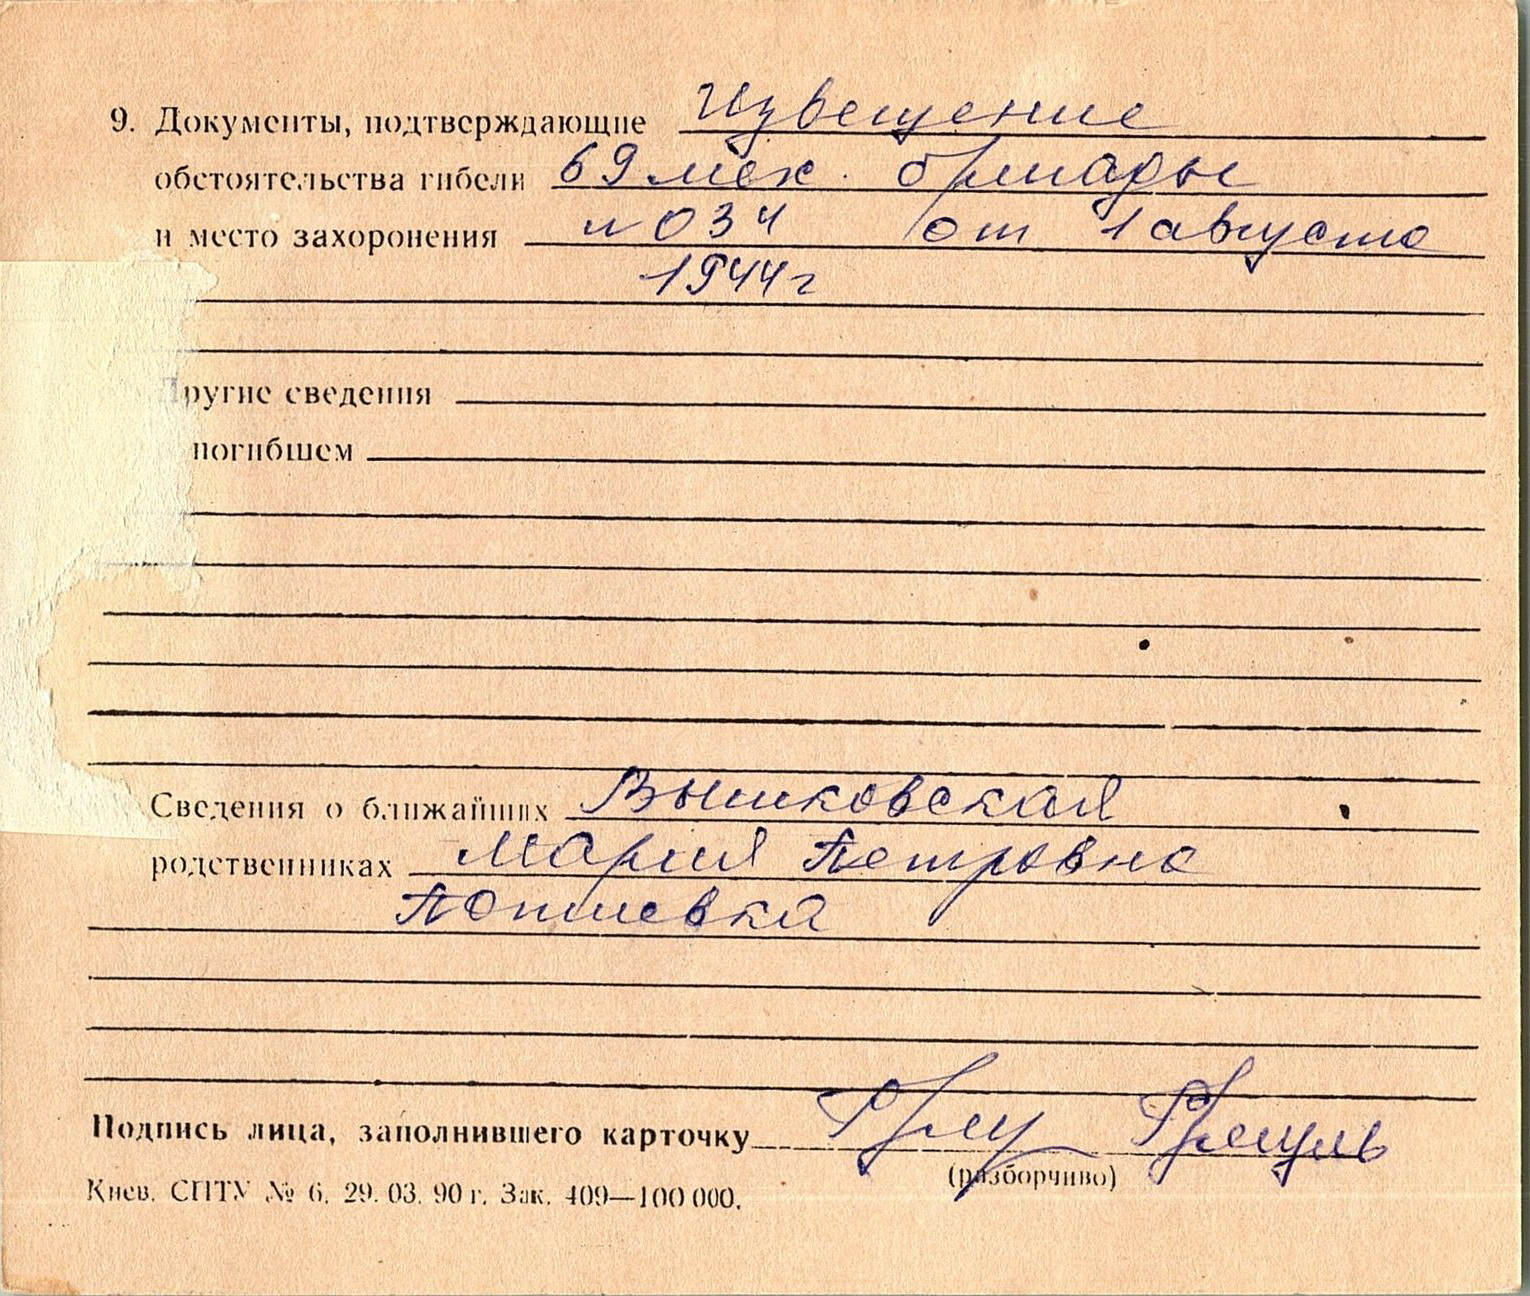 9. Документы, подтверждающие Извещение
обстоятельства гибели 69 мех. бригады
и место захоронения №034 от 1 августа
1944 г
Другие сведения
погибшем
Сведения о ближайших Вышковская
родственниках Мария Петровна
Потиевка
Подпись лица, заполнившего карточку
(разборчиво)
Киев. СПТУ № 6. 29. 03. 90 г. Зак. 409—100 000.